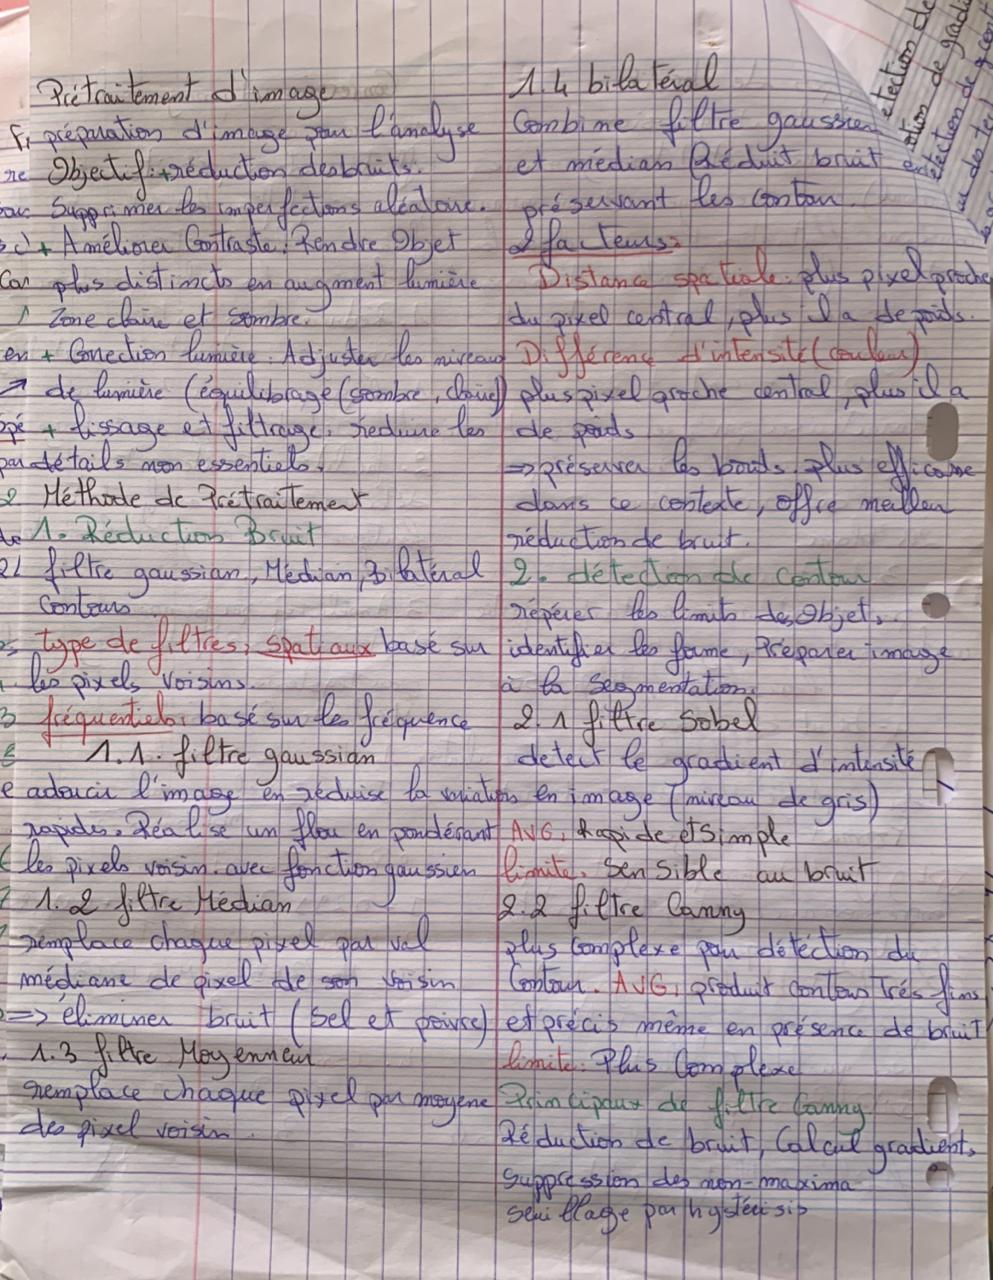 Prétraitement d'image
préparation d'image pour l'analyse
Objectif: +réduction des bruits.
Supprimer les imperfections aléatoire.
+ Améliorer Contraste: Rendre Objet
plus distincts en augment lumière
Zone claire et sombre.
+ Correction lumière. Adjuster les niveaux
de lumière (équilibrage (sombre, claire)
+ lissage et filtrage. réduire les
détails non essentiels.
Méthode de Prétraitement
1. Réduction Bruit
filtre gaussian, Médian, Bilatéral
Contours
type de filtres: spatiaux basé sur
les pixels voisins.
fréquentiels: basé sur les fréquence
1.1. filtre gaussian
adoucir l'image en réduise la variations
rapides. Réalise un flou en pondérant
les pixels voisin avec fonction gaussien
1.2 filtre Médian
remplace chaque pixel par val
médiane de pixel de son voisin
=> éliminer bruit (Sel et poivre)
1.3 filtre Moyenneur
remplace chaque pixel par moyene
des pixel voisin.
1.4 bilatéral
Combine filtre gaussien
et médian Réduit bruit en
préservant les contour.
2 facteurs:
Distance spatiale: plus pixel proche
du pixel central, plus il a de poids.
Différence d'intensité (couleur)
plus pixel proche central, plus il a
de poids
=> préserver les bords plus efficace
dans ce contexte, offre meilleur
réduction de bruit.
2. détection de contour
répérer les limits des Objet,
identifier les forme, Préparer image
à la segmentation.
2.1 filtre Sobel
detect le gradient d'intensité
en image (niveau de gris)
AVG: Rapide et Simple
limite: Sensible au bruit
2.2 filtre Canny
plus Complexe pour détéction du
Contour. AVG: produit contours Trés fins
et précis même en présence de bruit
limite: Plus Complexe
Principaux de filtre Canny
Réduction de bruit, Calcul gradients,
suppression des non-maxima
seuillage par hystérisis